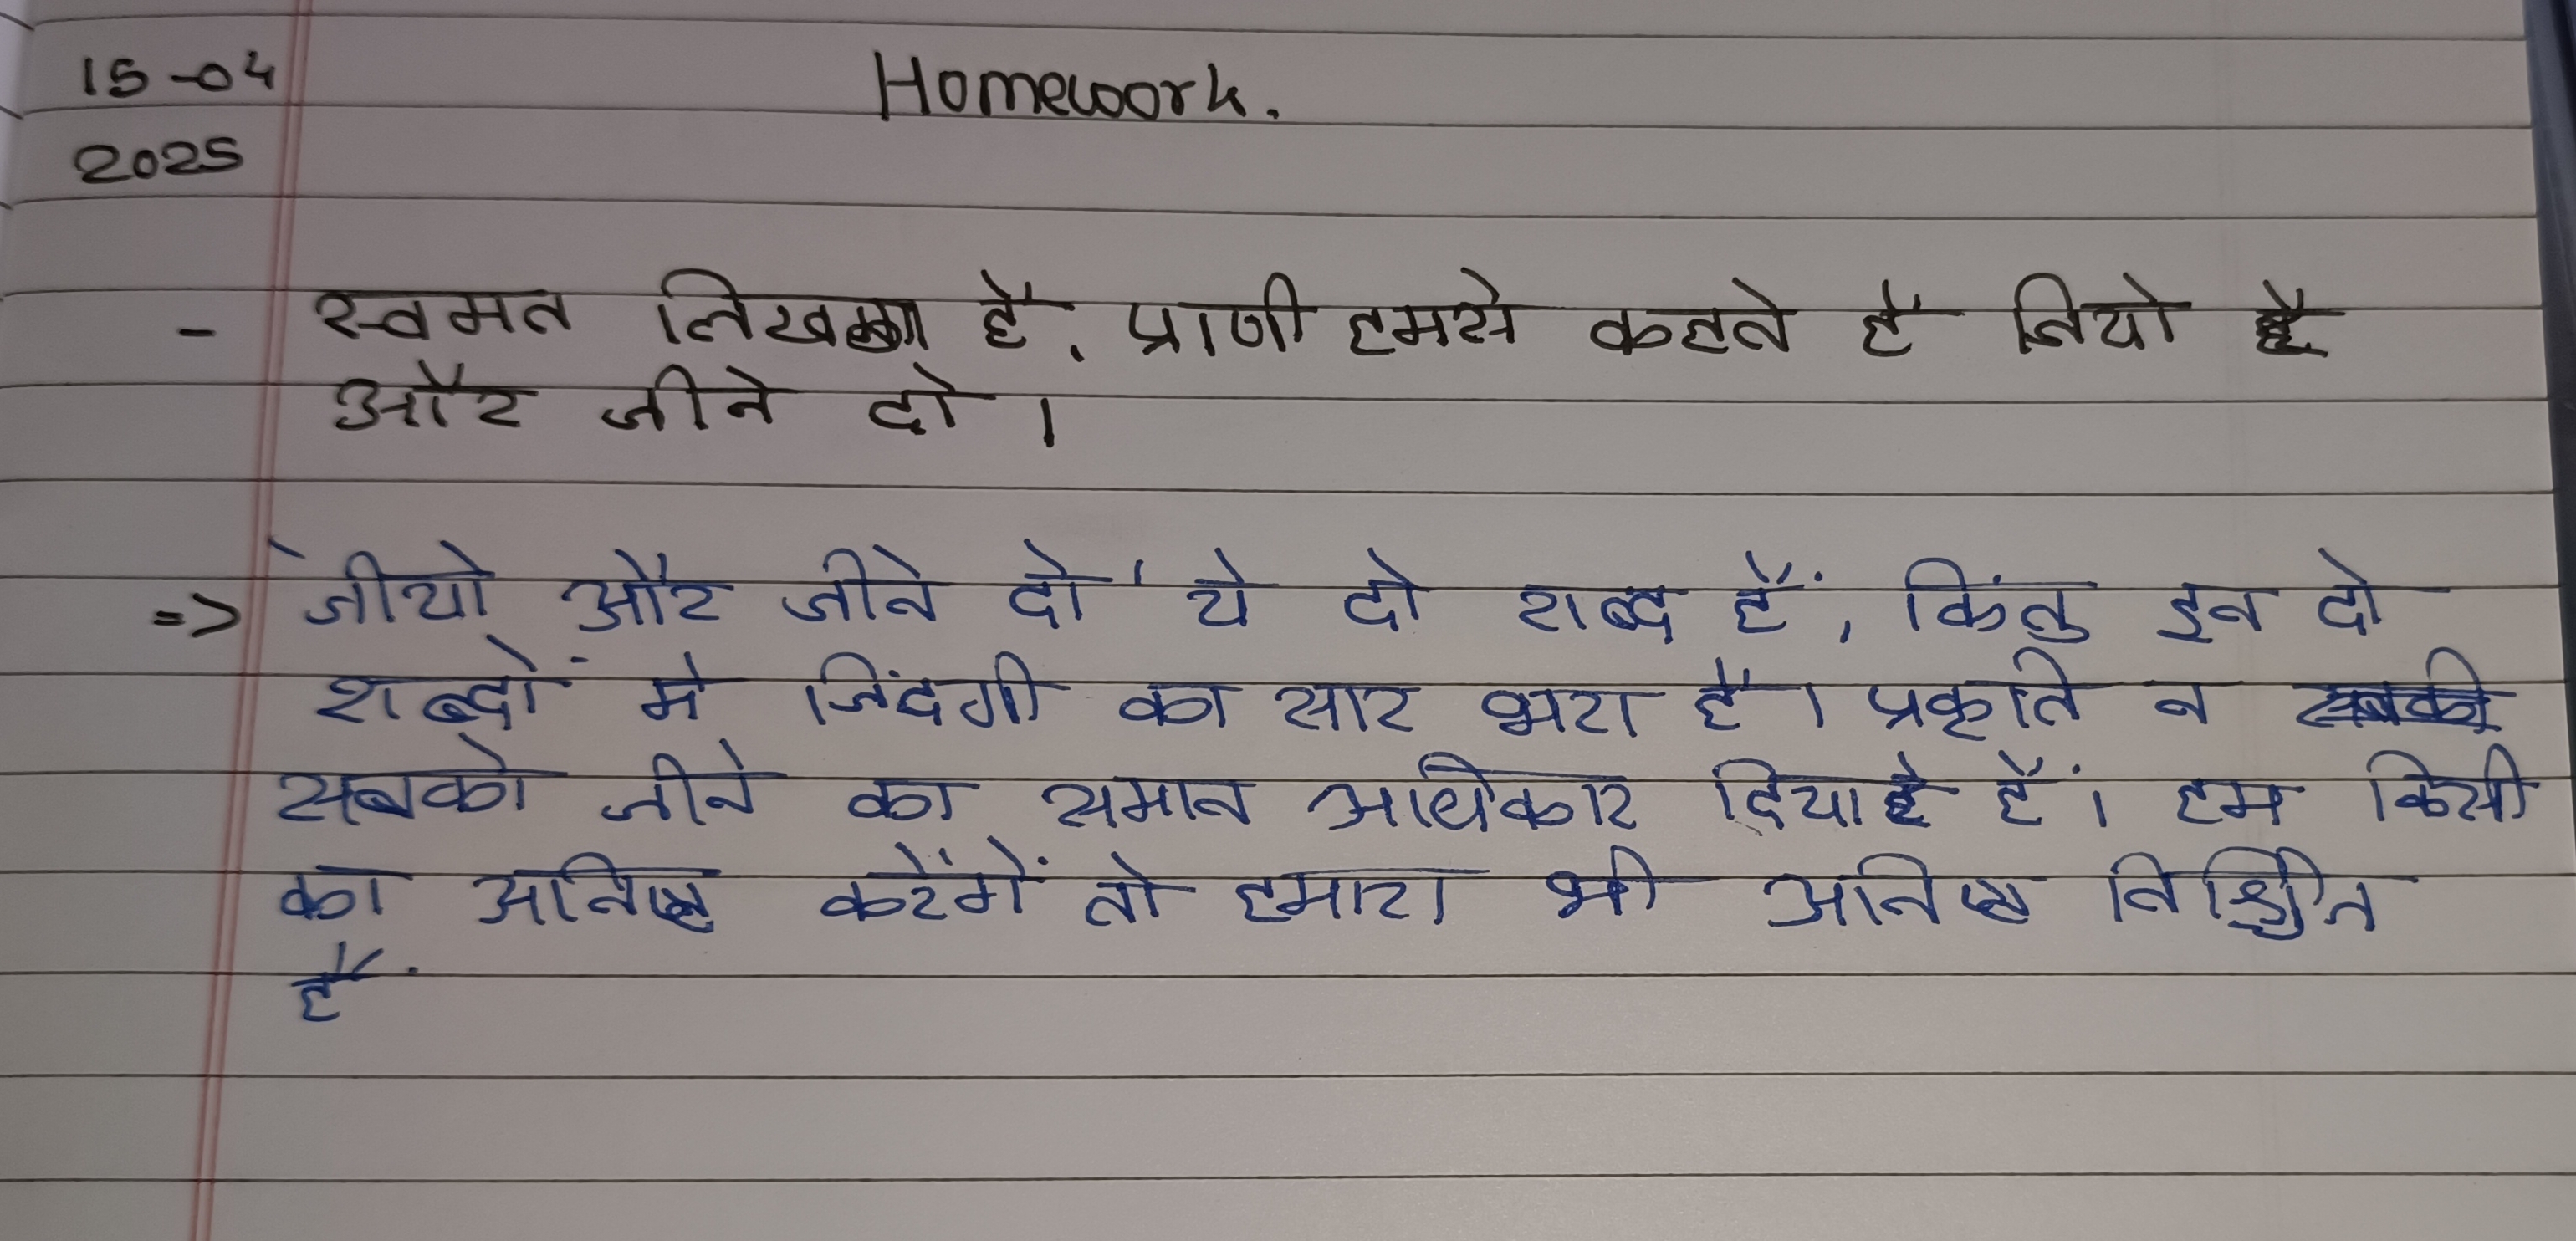 15-04 Homework.
2025
- स्वमत लिखना है. प्राणी हमसे कहते है जियो
और जीने दो।
=> 'जीयो और जीने दो' ये दो शब्द हैं, किंतु इन दो
शब्दों में जिंदगी का सार भरा है। प्रकृति न
सबको जीने का समान अधिकार दिया है हैं। हम किसी
का अनिष्ट करेंगें तो हमारा भी अनिष्ट निश्चित
हैं